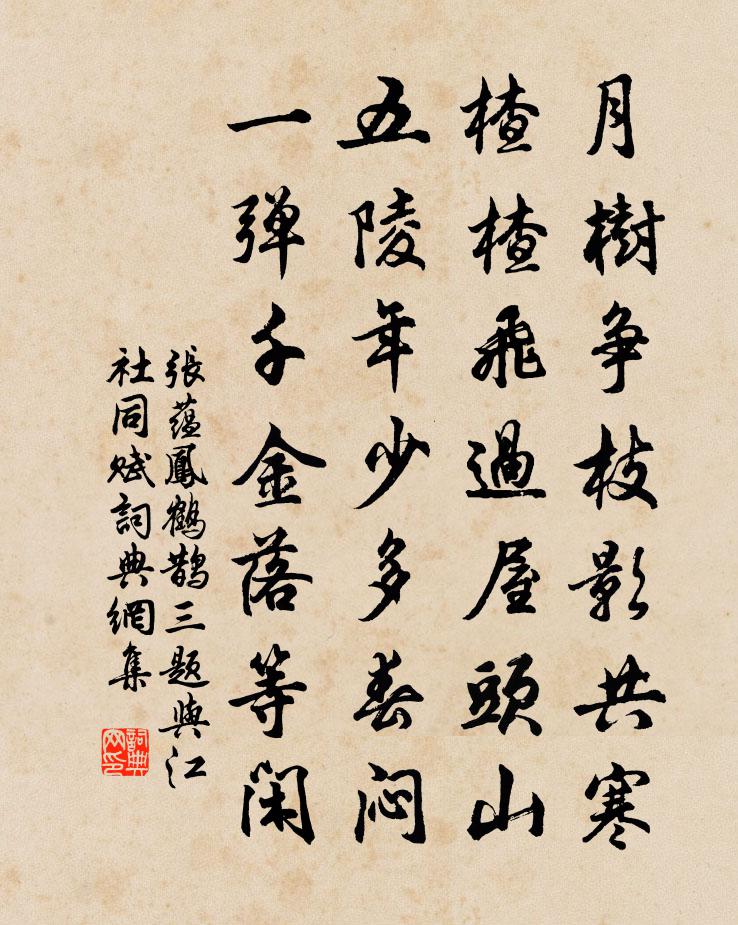 月樹争枝影共寒
楂楂飛過屋頭山
五陵年少多春闷
一弹千金落等閑
張蘊鳳鶴鹊三题與江
社同赋詞典網集
詞典
网印